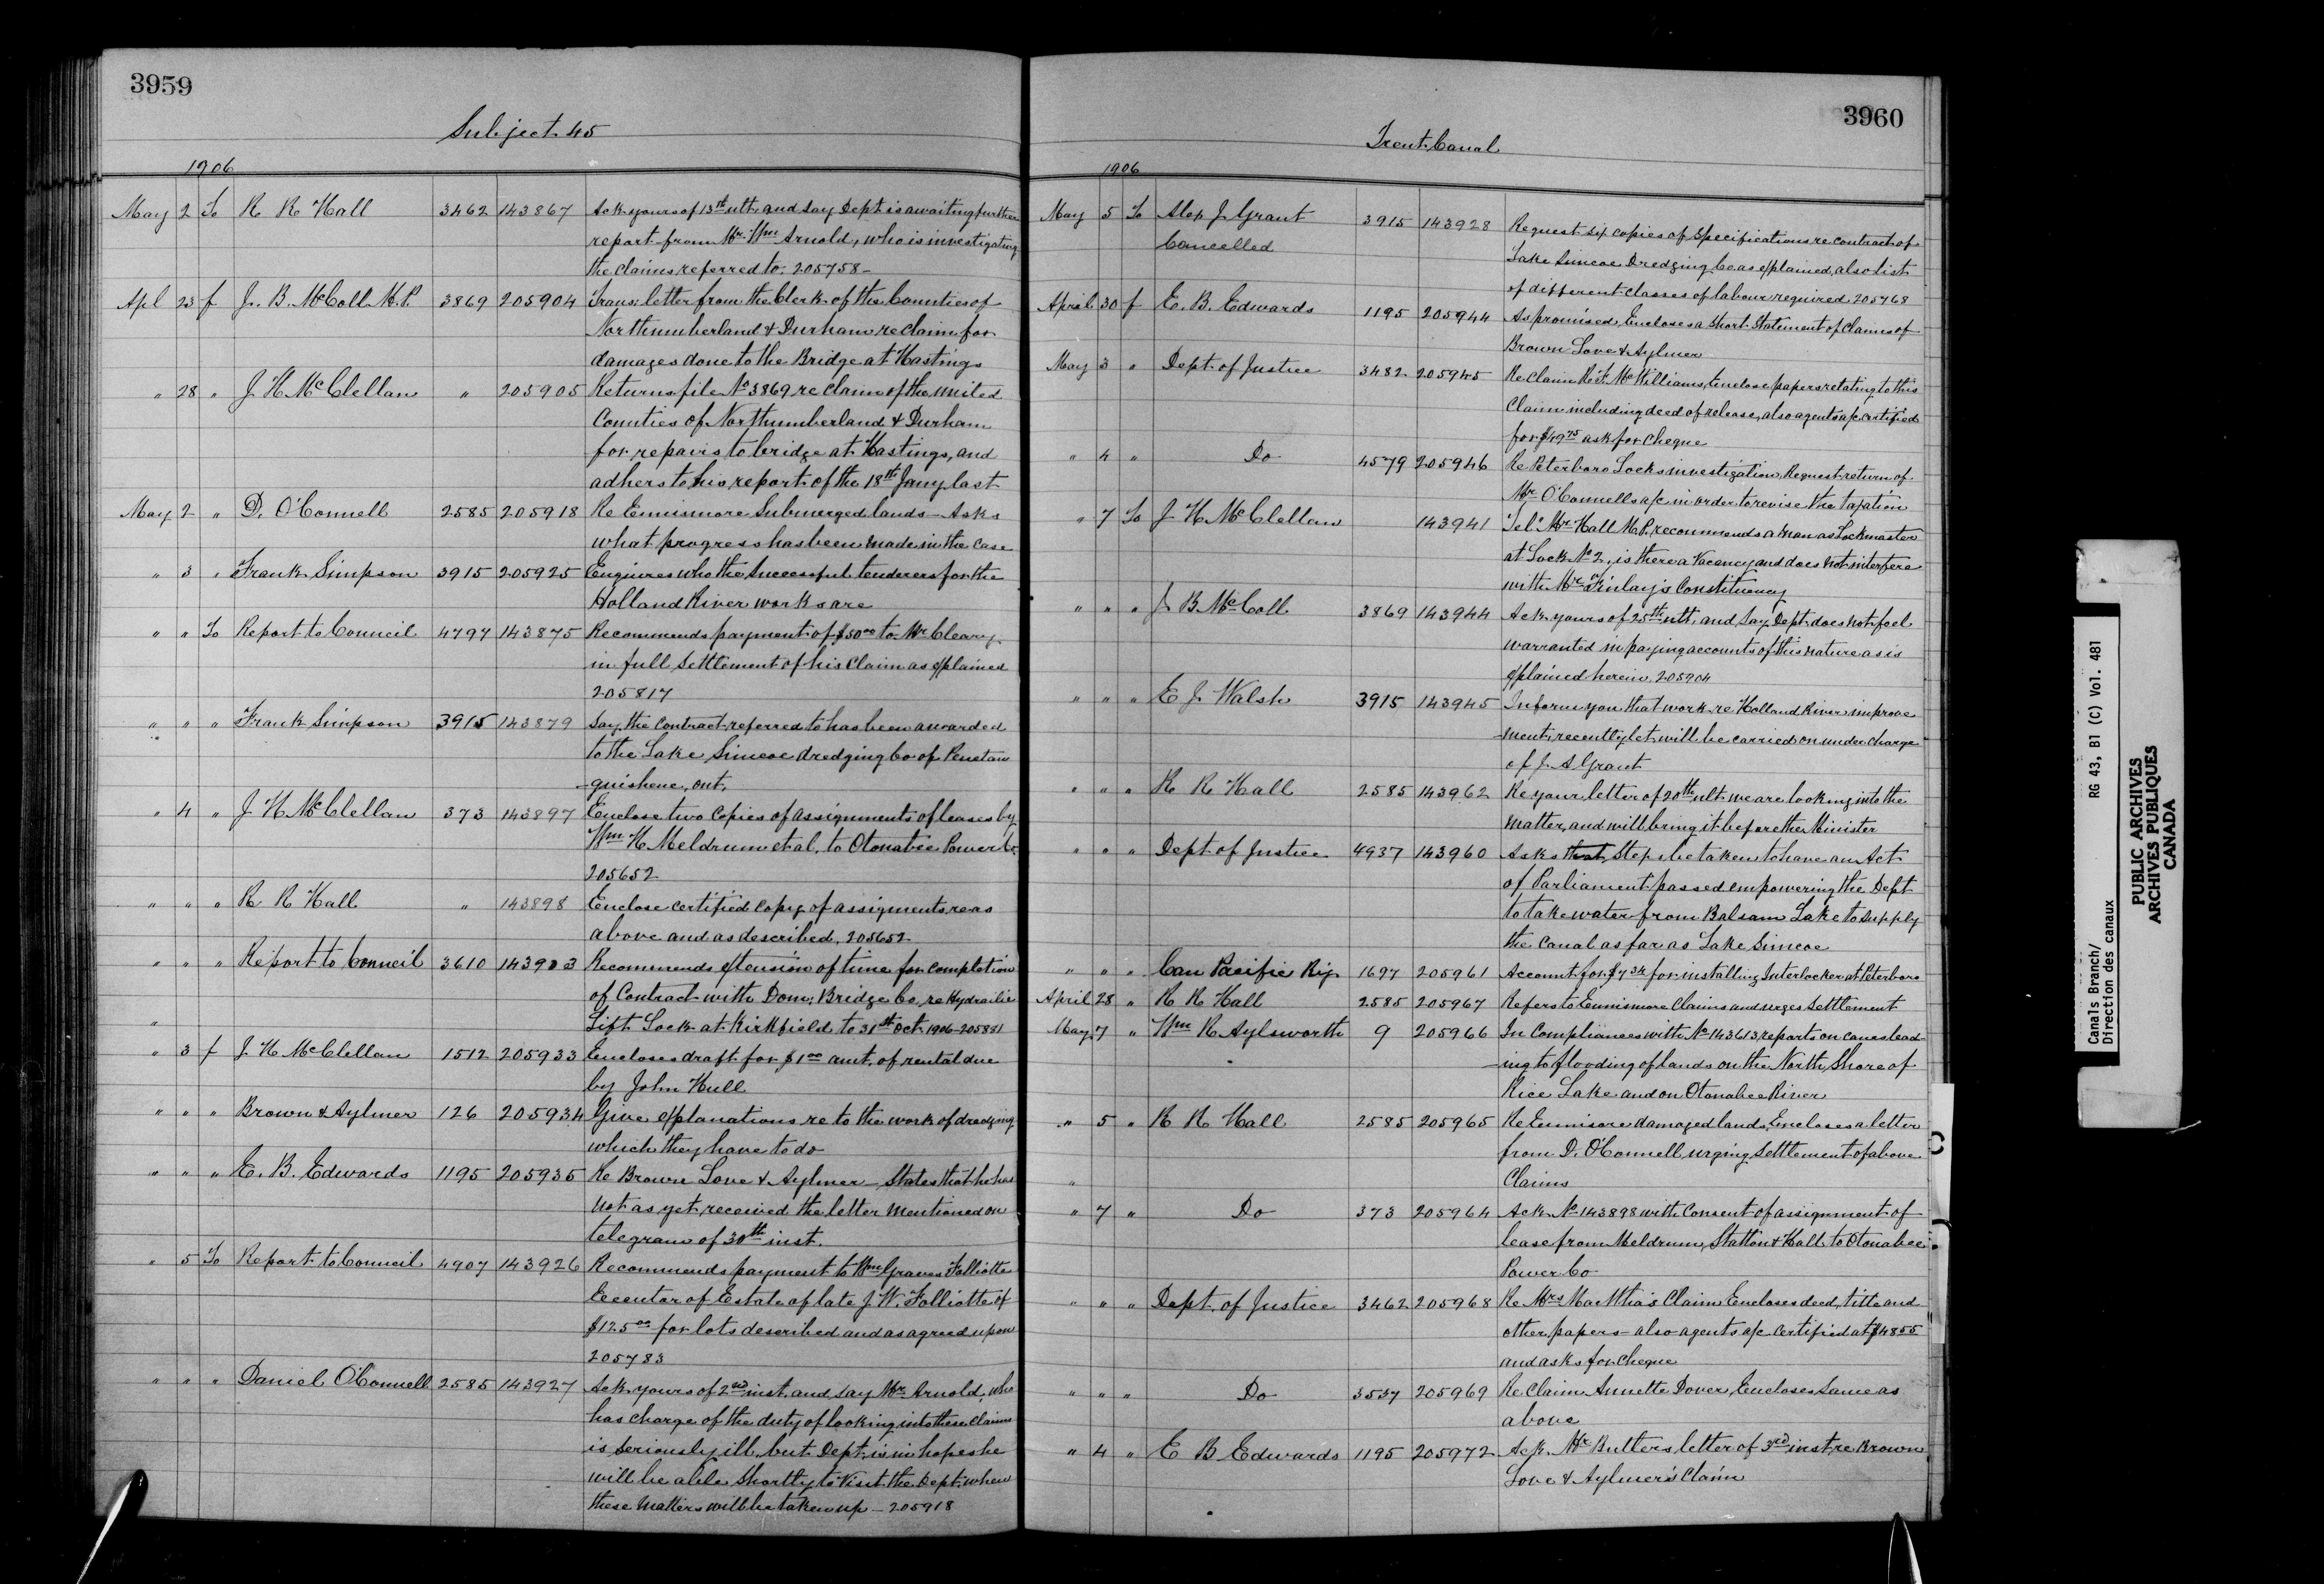 3959
Subject 45
1906
May 2 To R R Hall 3462 143867 Ack yours of 13th ult. and say Dept is awaiting further
report from Mr. Wm Arnold, who is investigating
the claims referred to. 205758-
Apl 23 f J. B. McColl M.P. 3869 205904 Trans: letter from the Clerk of the Counties of
Northumberland & Durham re claim for
damages done to the Bridge at Hastings
" 28 " J H McClellan " 205905 Returns file No 3869 re claim of the united
Counties of Northumberland & Durham
for repairs to bridge at Hastings, and
adhers to his report of the 18th Jany last
May 2 " D. O'Connell 2585 205918 Re Ennismore Submerged lands - Asks
what progress has been made in the case
" 3 " Frank Simpson 3915 205925 Enquires who the Successful tenderers for the
Holland River works are
" " To Report to Council 4797 143875 Recommends payment of $50 00 to Mr Cleary
in full Settlement of his claim as explained
205817
" " " Frank Simpson 3915 143879 Say the contract referred to has been awarded
to the Lake Simcoe dredging Co of Penetan
-guishene, ont.
" 4 " J H McClellan 373 143897 Enclose two copies of assignments of leases by
Wm H Meldrum et al, to Otonabee Power Co.
205652
" " " R R Hall " 143898 Enclose certified copy of assignments re as
above and as described, 205652
" " " Report to Council 3610 143903 Recommends extension of time for completion
of Contract with Dom: Bridge Co, re Hydraulic
" Lift Lock at Kirkfield to 31st Oct. 1906 - 205881
" 3 f J. H McClellan 1512 205933 Encloses draft for $1 00 amt. of rental due
by John Hull
" " " Brown & Aylmer 126 205934 Give explanations re to the work of dredging
which they have to do
" " " E. B. Edwards 1195 205935 Re Brown Love & Aylmer - States that he has
not as yet received the letter mentioned on
telegram of 30th inst.
" 5 To Report to Council 4907 143926 Recommends payment to Wm Graves Folliotte
Executor of Estate of late J W. Folliotte of
$125 00 for lots described and as agreed upon
205783
" " " Daniel O'Connell 2585 143927 Ack yours of 2nd inst. and say Mr. Arnold, who
has charge of the duty of looking into these claims
is seriously ill, but Dept. is in hopes he
will be able shortly to visit the Dept. when
these matters will be taken up - 205918
3960
Trent Canal
1906
May 5 To Alex J Grant 3915 143928 Request six copies of specifications re contract of
Cancelled
Lake Simcoe Dredging Co as explained, also list
of different classes of labour required 205768
April 30 f E. B. Edwards 1195 205944 As promised, Encloses a short Statement of claims of
Brown Love & Aylmer
May 3 " Dept. of Justice 3482 205945 Re claim McWilliams, Enclose papers relating to this
Claim including deed of release, also agents a/c certified
for $49 75 ask for cheque
" 4 " Do 4579 205946 Re Peterboro Locks investigation, Request return of
Mr O'Connells a/c in order to revise the taxation
" 7 To J H McClellan 143941 "Tel" Mr Hall M.P. recommends a man as Lockmaster
at Lock No 2, is there a Vacancy and does not interfere
with Mr Finlay's Constituency
" " " J B McColl 3869 143944 Ack yours of 25th ult. and say Dept. does not feel
warranted in paying accounts of this nature as is
explained herein. 205904
" " " E J Walsh 3915 143945 Inform you that work re Holland River improve
-ment, recently let, will be carried on under charge
of J. A Grant
" " " R R Hall 2585 143962 Re your letter of 20th ult. we are looking into the
matter, and will bring it before the Minister
" " " Dept of Justice 4937 143960 Asks that Steps be taken to have an Act
of Parliament passed empowering the Dept
to take water from Balsam Lake to supply
the Canal as far as Lake Simcoe
" " " Can Pacific Ry. 1697 205961 Account for $7 34 for installing Interlocker at Peterboro
April 28 " R R Hall 2585 205967 Refers to Ennismore Claims and urges Settlement
May 7 " Wm R Aylsworth 9 205966 In Compliances with No 143613, reports on causes lead-
-ing to flooding of lands on the North Shore of
Rice Lake and on Otonabee River
" 5 " R R Hall 2585 205965 Re Ennismore damaged lands, Encloses a letter
from D. O'Connell urging Settlement of above
" Claims
" 7 " Do 373 205964 Ack No 143898 with Consent of assignment of
lease from Meldrum, Stratton & Hall to Otonabee
Power Co
" " " Dept. of Justice 3462 205968 Re Mrs Claim Encloses deed, title and
other papers - also agents a/c certified at $48 55
and asks for Cheque
" " " Do 3537 205969 Re Claim Annette Dover, Encloses Same as
above
" 4 " E B Edwards 1195 205972 Ack. Mr Butlers letter of 3rd inst, re Brown
Love & Aylmer's Claim
Canals Branch/ RG 43, B1 (C) Vol. 481
Direction des canaux
PUBLIC ARCHIVES
ARCHIVES PUBLIQUES
CANADA